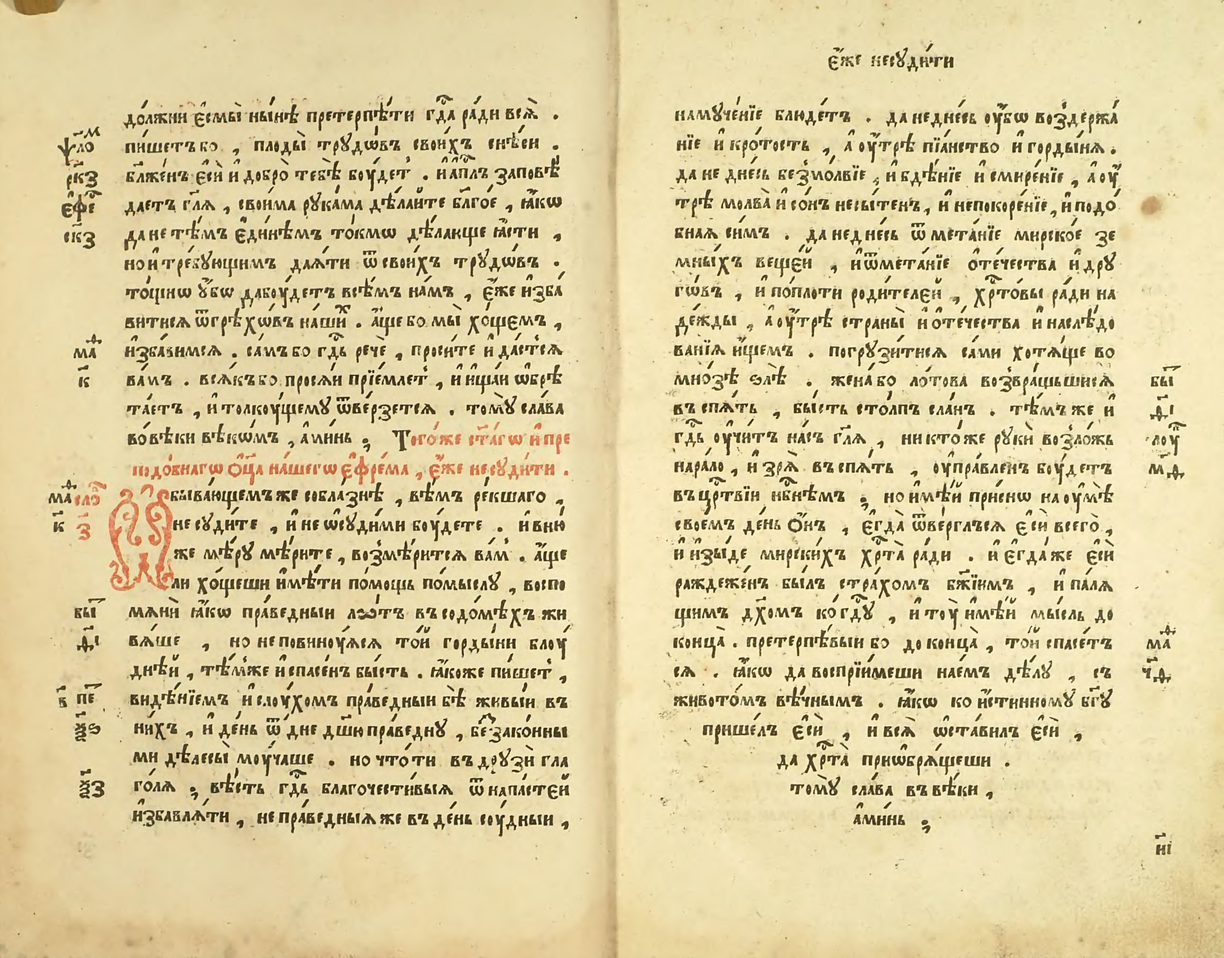 до́лжни є҆смы̀ ны́нѣ претерпѣ́ти гдⷭ҇а ра́ди всѧ̀ .
ѱало́м пи́шетъ бо , плоды̀ трꙋдѡ́въ свои́хъ снѣ́си .
рк҃з бл҃же́нъ є҆сѝ и҆ добро̀ тебѣ̀ бꙋ́детъ . и҆ а҆пⷭ҇лъ заповѣ́
є҆фе́ даетъ гл҃ѧ , свои́ма рꙋка́ма дѣ́лайте бл҃го́е , ꙗ҆́кѡ
ск҃з да не тѣ́мъ є҆ди́нѣмъ то́кмѡ дѣ́лающе ꙗ҆́сти ,
но и҆ тре́бꙋющимъ даѧ́ти ѿ свои́хъ трꙋдѡ́въ .
то́щнѡ ᲂу҆́бѡ да бꙋ́детъ всѣ́мъ на́мъ , є҆́же и҆зба́
витисѧ ѿ грѣхѡ́въ на́шиⷯ . а҆́ще бо мы̀ хо́щемъ ,
маⷴ и҆зба́вимсѧ . са́мъ бо гдⷭ҇ь речѐ , проси́те и҆ да́стсѧ
к҃ ва́мъ . всѧ́къ бо просѧ́и прїе́млет , и҆ и҆щаи ѡ҆брѣ
та́етъ , и҆ толкꙋ́щемꙋ ѿве́рзетсѧ . томꙋ̀ сла́ва
во вѣ́ки вѣкѡ́мъ , а҆ми́нь ; Того́же ст҃а́гѡ и҆ пре
подо́бнагѡ ѻ҆ц҃а̀ на́шегѡ є҆фре́ма , є҆́же не сꙋди́ти .
маⷴ сло́ бывающемъ же собла́знѣ , вѣ́мъ ре́кшаго ,
к҃ з҃ не сꙋди́те , и҆ не ѡ҆сꙋди́ми бꙋ́дете . и҆ в ню́
же мѣ́рꙋ мѣ́рите , возмѣ́ритсѧ ва́м . а҆́ще
ли хо́щеши и҆мѣ́ти по́мощь по́мыслꙋ , воспо
бы́ мѧнѝ ꙗ҆́кѡ пра́ведныи ло́тъ въ содо́мѣхъ жи
д҃і вѧ́ше , но не повинꙋ́ѧсѧ то́й горды́ни блꙋ́
днѣ́й , тѣ́мже и҆ спасе́нъ бы́сть . ꙗ҆́коже пи́шет ,
в҃ пе́ видѣ́нїемъ и҆ слꙋ́хомъ пра́ведныи бѣ̀ живы́и въ
ни́хъ , и҆ де́нь ѿ дне дш҃ю пра́веднꙋ , беззако́нны
ми дѣлесы̀ мꙋ́чаше . но что́ ти въ дрꙋзі́и гла
ѯ҃з го́лѧ ; вѣ́сть гдⷭ҇ь благочести́выѧ ѿ напа́стей
и҆збавлѧ́ти , непра́ведныѧ же въ де́нь сꙋ́дныи ,
є҆́же не сꙋди́ти
на мꙋче́нїе блюде́тъ . да не дне́сь ᲂу҆́бѡ воздержа́
нїе и҆ кро́тость , а҆ ᲂу҆́трѣ пїа́нство и҆ горды́нѧ .
да не дне́сь безмо́лвїе , и҆ бдѣ́нїе и҆ смире́нїе , а҆ ᲂу҆́
трѣ молва̀ и҆ со́нъ несы́тенъ , и҆ непокоре́нїе , и҆ подо́
бнаѧ си́мъ . да не дне́сь ѿмета́нїе мирско́е зе
мны́хъ веще́й , и҆ ѿмета́нїе ѻ҆те́чества и҆ дрꙋ
гѡ́въ , и҆ по пло́ти роди́телей , хрⷭ҇то́вы ра́ди на
де́жды , а҆ ᲂу҆́трѣ страны̀ и҆ ѻ҆те́чества и҆ наслѣ́до
ванїѧ и҆́щемъ . погрꙋзи́тисѧ са́ми хотѧ́ще во
мно́зѣ ѕлѣ̀ . жена́ бо ло́това возвра́щьшисѧ бы́
въ спѧ́ть , бы́сть сто́лпъ сла́нъ . тѣ́мъ же и҆ д҃і
гдⷭ҇ь ᲂу҆чи́тъ на́съ гл҃ѧ , никто́же рꙋкѝ возло́жь лꙋ́
на ра́ло , и҆ зрѧ̀ въ спѧ́ть , ᲂу҆пра́вленъ бꙋ́детъ м҃д
въ црⷭ҇твїи нбⷭ҇нѣмъ ; но и҆мѣ́й при́снѡ на ᲂу҆мѣ̀
свое́мъ де́нь ѻ҆́нъ , є҆гда̀ ѿве́рглъсѧ є҆сѝ всего̀ ,
и҆ и҆зы́де мирски́хъ хрⷭ҇та̀ ра́ди . и҆ є҆гда́ же є҆сѝ
раждеже́нъ бы́лъ стра́хомъ бж҃їимъ , и҆ палѧ́
щимъ дх҃омъ ко гдⷭ҇ꙋ , и҆ тꙋ̀ и҆мѣ́й мы́сль до
конца̀ . претерпѣ́выи бо до конца̀ , то́й спасе́т маⷴ
сѧ . ꙗ҆́кѡ да воспрїи́меши нае́мъ дѣ́лꙋ , съ ч҃д
живото́мъ вѣ́чнымъ . ꙗ҆́кѡ ко и҆́стинномꙋ бг҃ꙋ
прише́лъ є҆сѝ , и҆ всѧ̀ ѡ҆ста́вилъ є҆сѝ ,
да хрⷭ҇та̀ приѡбрѧ́щеши .
томꙋ̀ сла́ва въ вѣ́ки ,
а҆ми́нь ;
н҃і